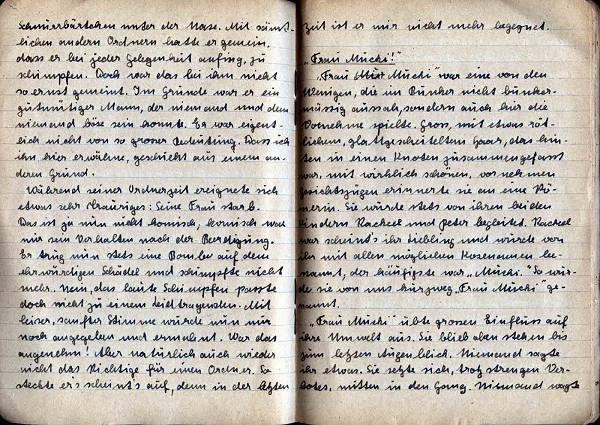 Schnurrbärtchen unter der Nase. Mit sämt-
lichen andern Ordnern hatte er gemein,
dass er bei jeder Gelegenheit anfing, zu
schimpfen. Doch war das bei ihm nicht
so ernst gemeint. Im Grunde war er ein
gutmütiger Mann, der niemand und dem
niemand böse sein konnte. Es war eigent-
lich nicht von so grosser Bedeutung. Dass ich
ihn hier erwähne, geschieht aus einem an-
deren Grund.
Während seiner Ordnerzeit ereignete sich
etwas sehr Trauriges: Seine Frau starb.
Das ist ja nun nicht komisch, komisch war
nur sein Verhalten nach der Beerdigung.
Er trug nun stets eine Bombe auf dem
ehrwürdigen Schädel und schimpfte nicht
mehr. Nein, das laute Schimpfen passte
doch nicht zu einem Leidtragenden. Mit
leiser, sanfter Stimme wurde nun nur
noch angegeben und ermahnt. War das
angenehm! Aber natürlich auch wieder
nicht das Richtige für einen Ordner. So
steckte er's scheint's auf, denn in der letzten
Zeit ist er mir nicht mehr begegnet.
„Frau Mucki!"
„Frau Mucki" war eine von den
Wenigen, die im Bunker nicht bunker-
mässig aussah, sondern auch hier die
Vornehme spielte. Gross, mit etwas röt-
lichem, glattgescheiteltem Haar, das hin-
ten in einen Knoten zusammengefasst
war, mit wirklich schönen, vornehmen
Gesichtszügen erinnerte sie an eine Rö-
merin. Sie wurde stets von ihren beiden
Kindern Rachel und Peter begleitet. Rachel
war scheint's ihr Liebling und wurde von
ihr mit allen möglichen Kosenamen be-
nannt, der häufigste war „Mucki." So wur-
de sie von uns kurzweg „Frau Mucki" ge-
nannt.
„Frau Mucki" übte grossen Einfluss auf
ihre Umwelt aus. Sie blieb oben stehen bis
zum letzten Augenblick. Niemand sagte
ihr etwas. Sie setzte sich, trotz strengen Ver-
botes, mitten in den Gang. Niemand wagte